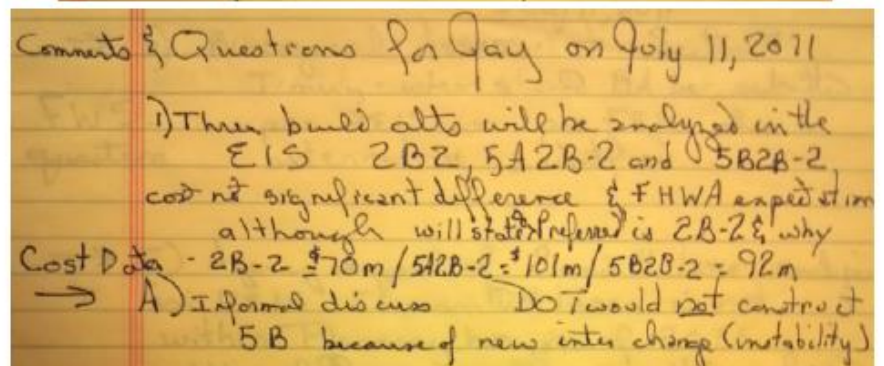 Comments & Questions for Jay on July 11, 2011
1) Three build alts will be analyzed in the
EIS 2B2, 5A2B-2 and 5B2B-2
cost not significant difference & FHWA expect
although will state preferred is 2B-2 & why
Cost Data - 2B-2 = $70m / 5A2B-2 = $101m / 5B2B-2 = 92m
→ A) Informal discuss DOT would not construct
5B because of new inter change (instability)